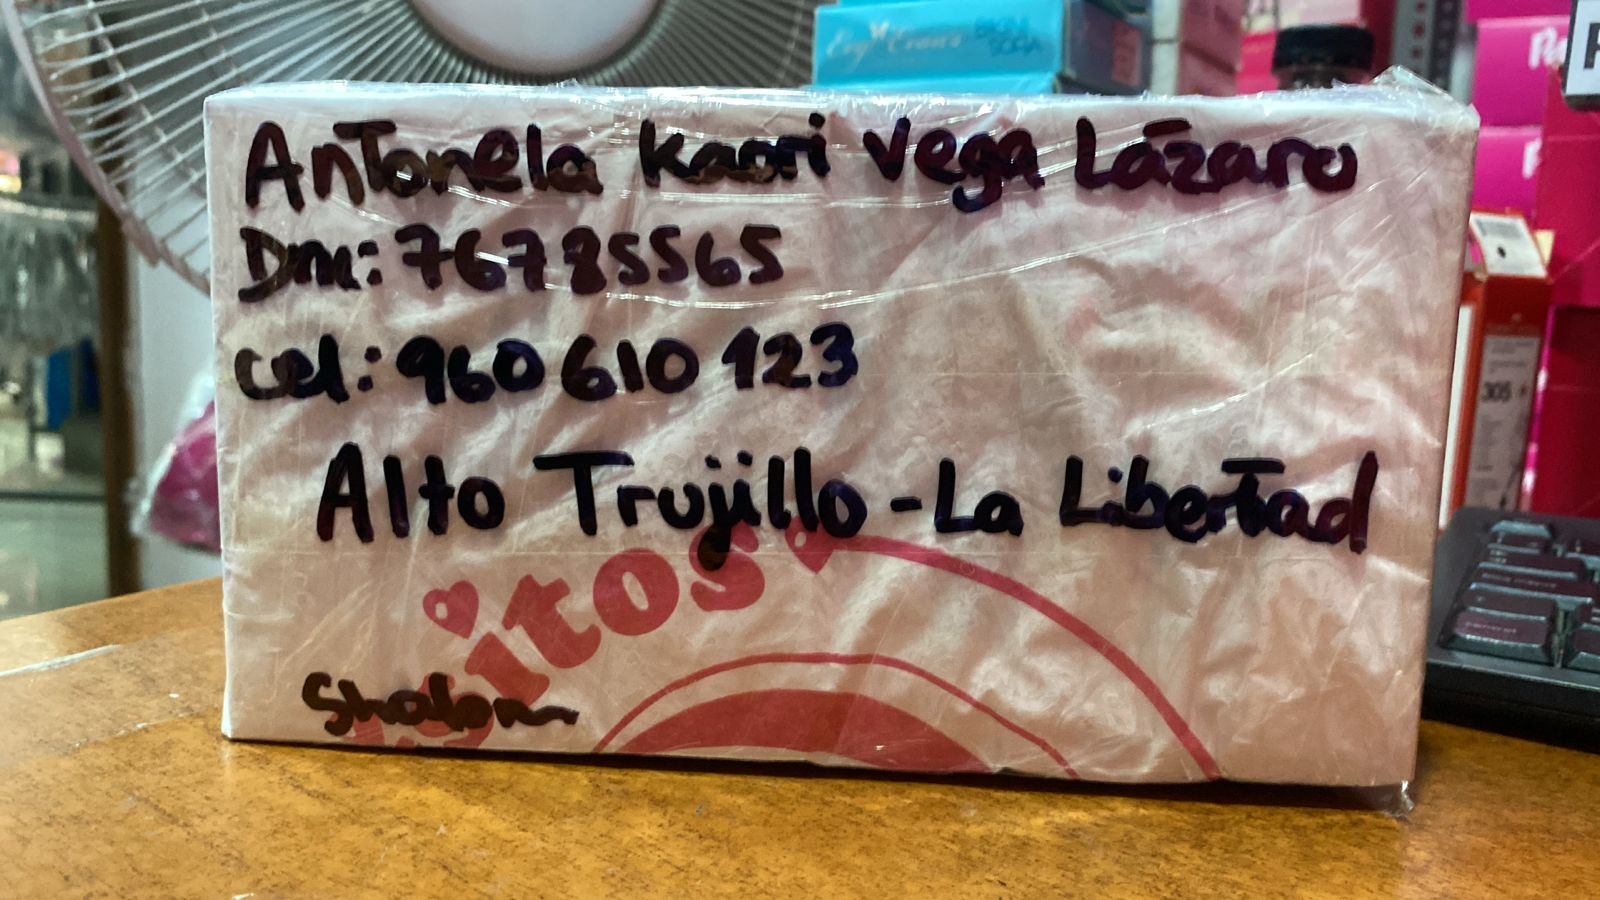 Antonela Kaori Vega Lázaro
Dni: 76785565
cel: 960 610 123
Alto Trujillo - La Libertad
Shalom
305